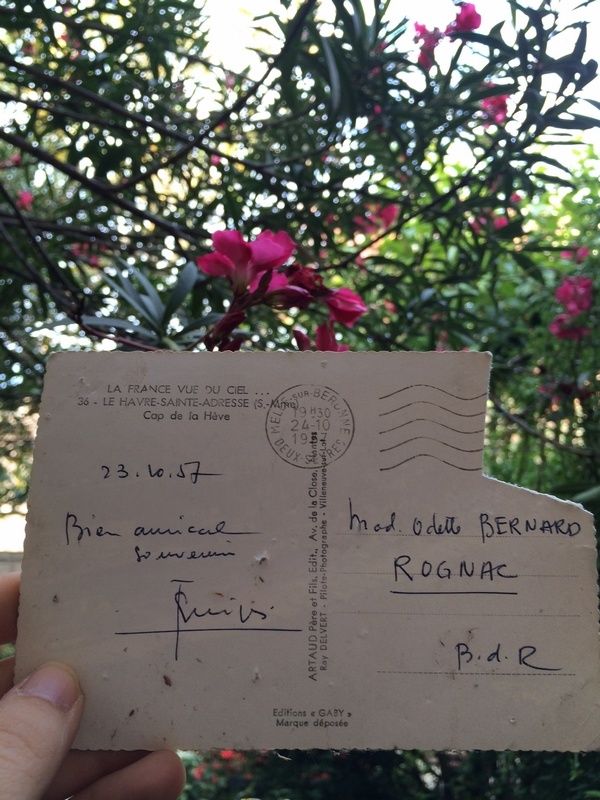 LA FRANCE VUE DU CIEL ...
36 - LE HAVRE-SAINTE-ADRESSE (S.-Mme)
Cap de la Hève
MELLE-SUR-BERONNE
19H30
24-10
DEUX-SEVRES
23.10.57
Bien amical
souvenir
Mad. Odette BERNARD
ROGNAC
B.d.R
ARTAUD Père et Fils, Edit., Av. de la Close, Nantes
Ray DELVERT - Pilote-Photographe - Villeneuve-sur-Lot
Editions « GABY »
Marque déposée